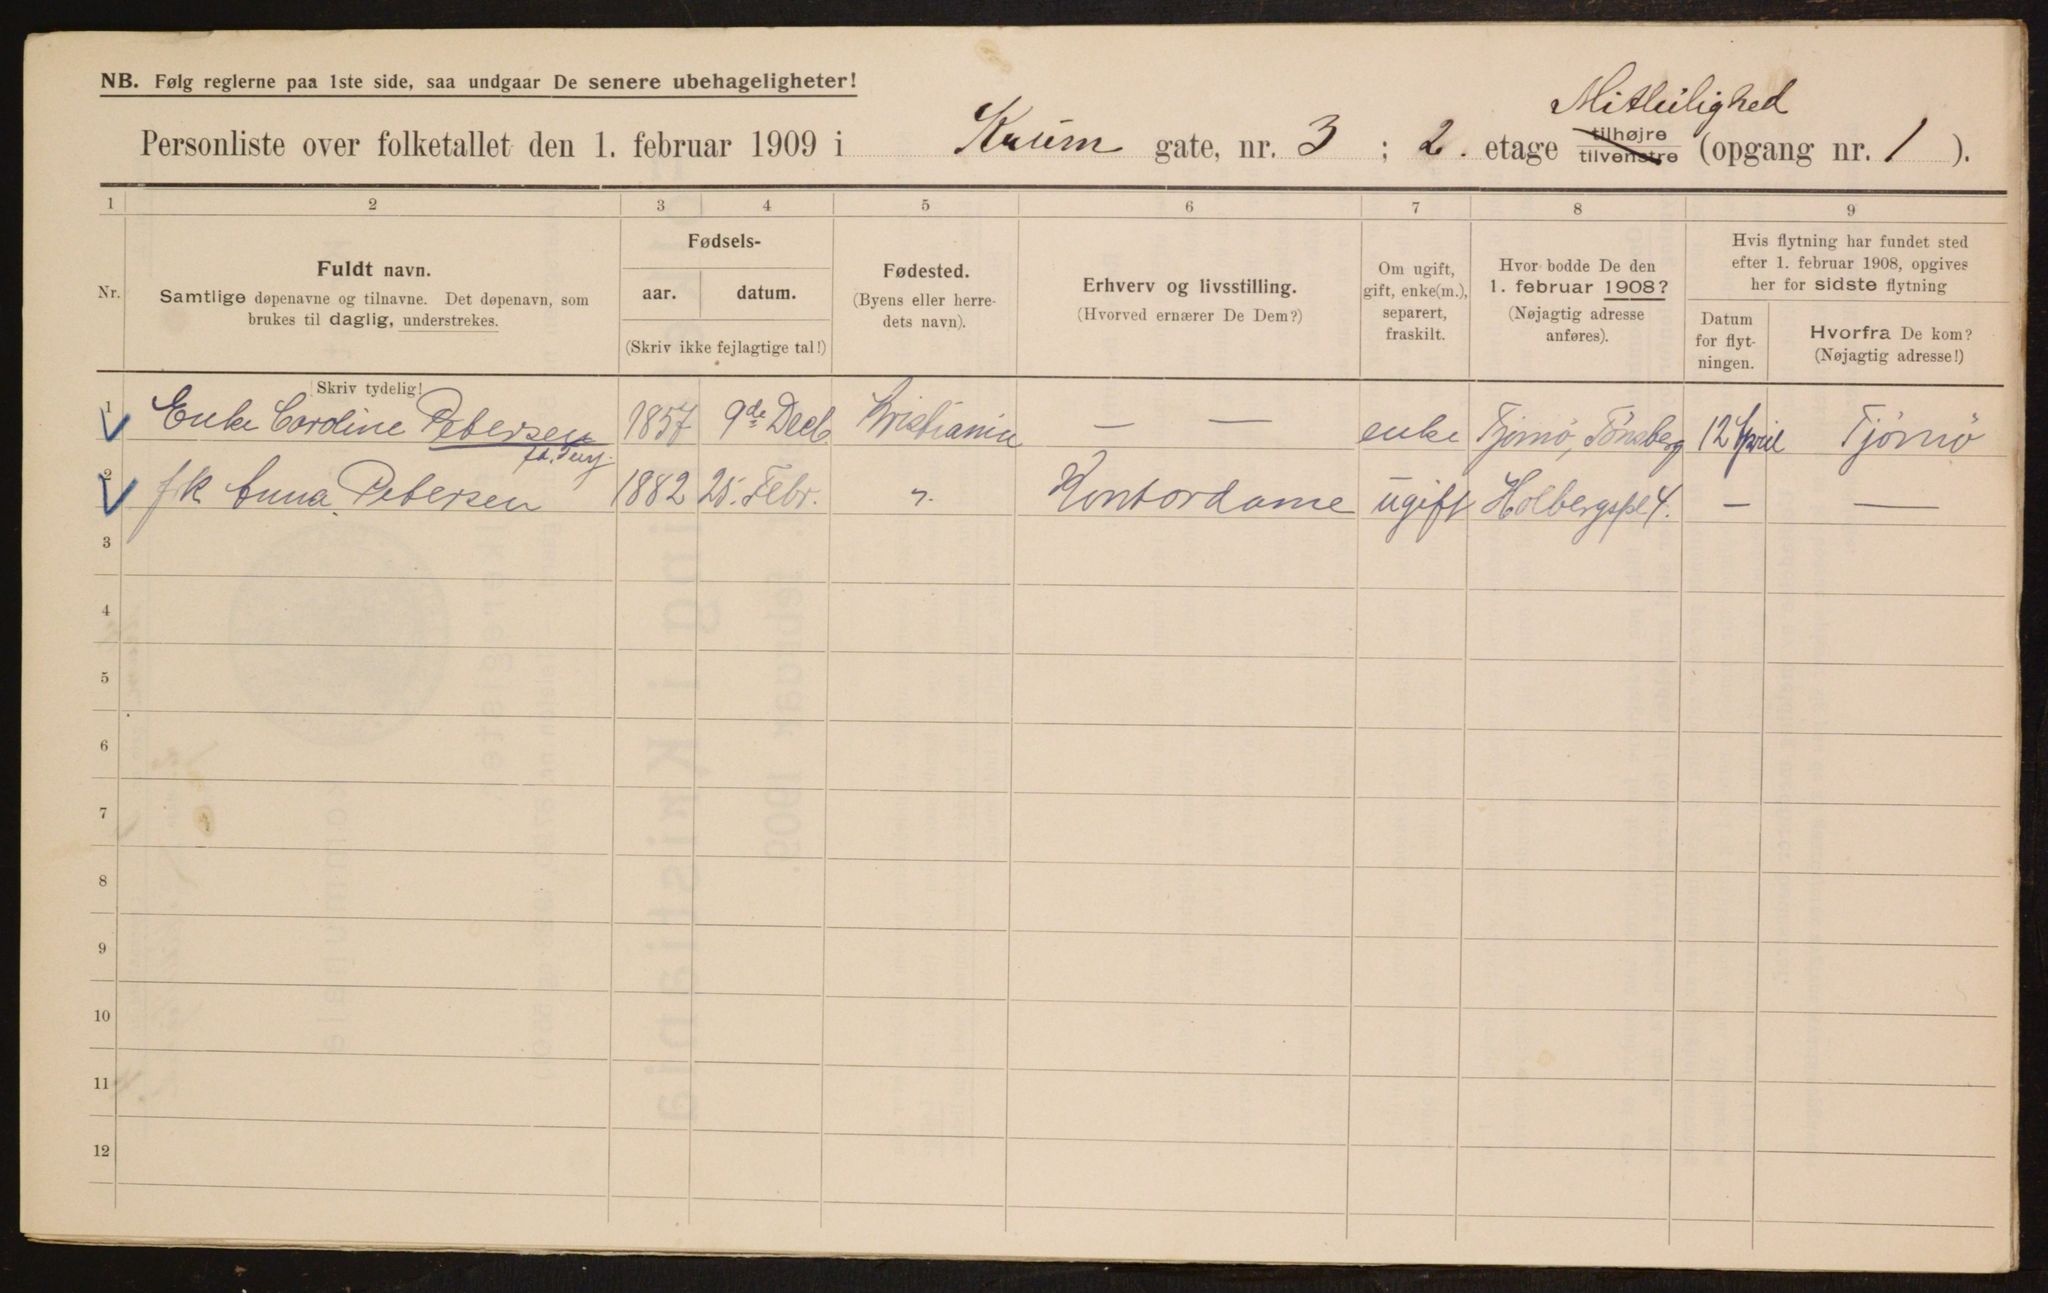 NB. Følg reglerne paa 1ste side, saa undgaar De senere ubehageligheter!
Mitleilighed
Personliste over folketallet den 1. februar 1909 i Krum gate, nr. 3 ; 2. etage tilhøjre tilvenstre (opgang nr. 1 ).
1 2 3 4 5 6 7 8 9
Nr.
Fuldt navn.
Samtlige døpenavne og tilnavne. Det døpenavn, som
brukes til daglig, understrekes.
Fødsels-
aar. datum.
(Skriv ikke fejlagtige tal!)
Fødested.
(Byens eller herre-
dets navn).
Erhverv og livsstilling.
(Hvorved ernærer De Dem?)
Om ugift,
gift, enke(m.),
separert,
fraskilt.
Hvor bodde De den
1. februar 1908?
(Nøjagtig adresse
anføres).
Hvis flytning har fundet sted
efter 1. februar 1908, opgives
her for sidste flytning
Datum
for flyt-
ningen.
Hvorfra De kom?
(Nøjagtig adresse!)
Skriv tydelig!
1 Enke Caroline Petersen 1857 9de Decb Kristiania — — enke Tjømø, Tönsberg 12 April Tjømø
2 frk Anna Petersen 1882 25. Febr. " Kontordame ugift Holbergspl 4. — —
3
4
5
6
7
8
9
10
11
12